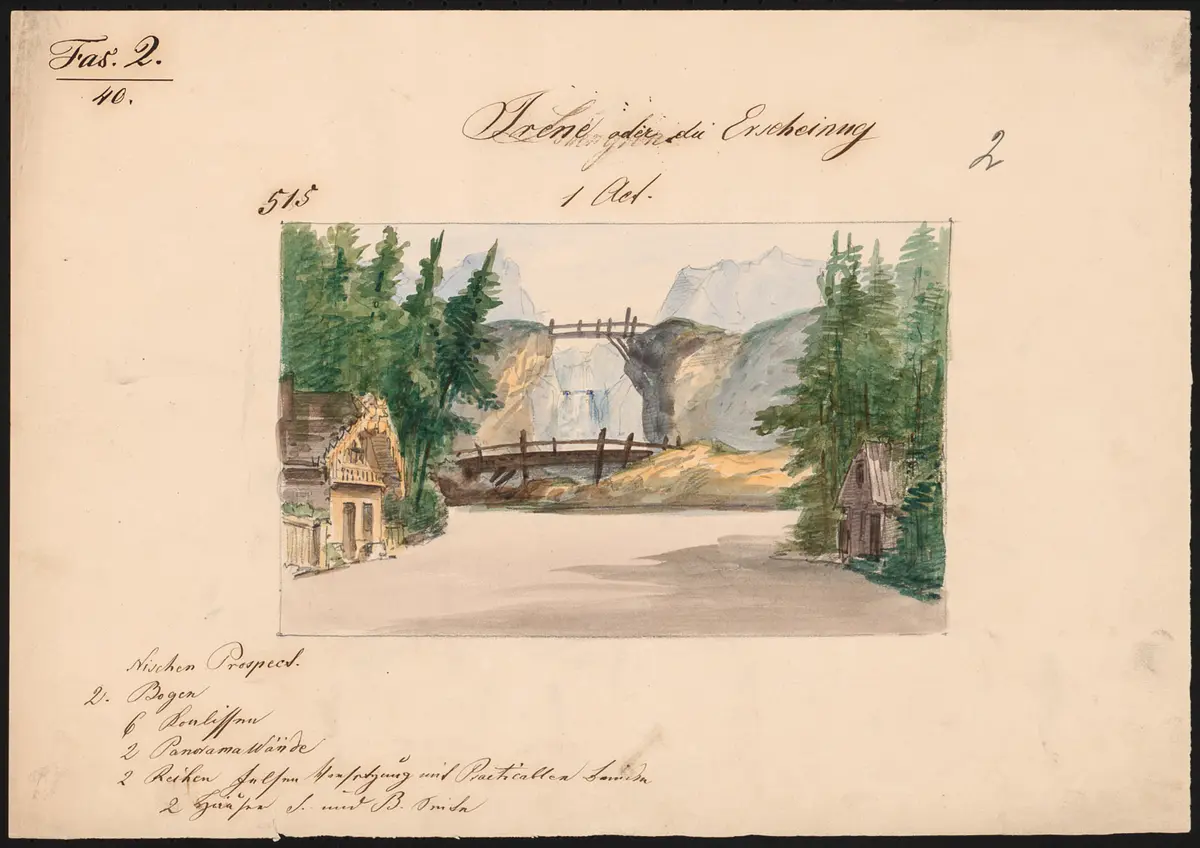 Fas. 2.
40.
Irene oder die Erscheinug
2
515
1 Act.
Nischen Prospect.
2. Bogen
6 Koulissen
2 Panorama Wände
2 Reihen Felsen Versetzung mit Practicablen
2 Häuser S. und B. Seite